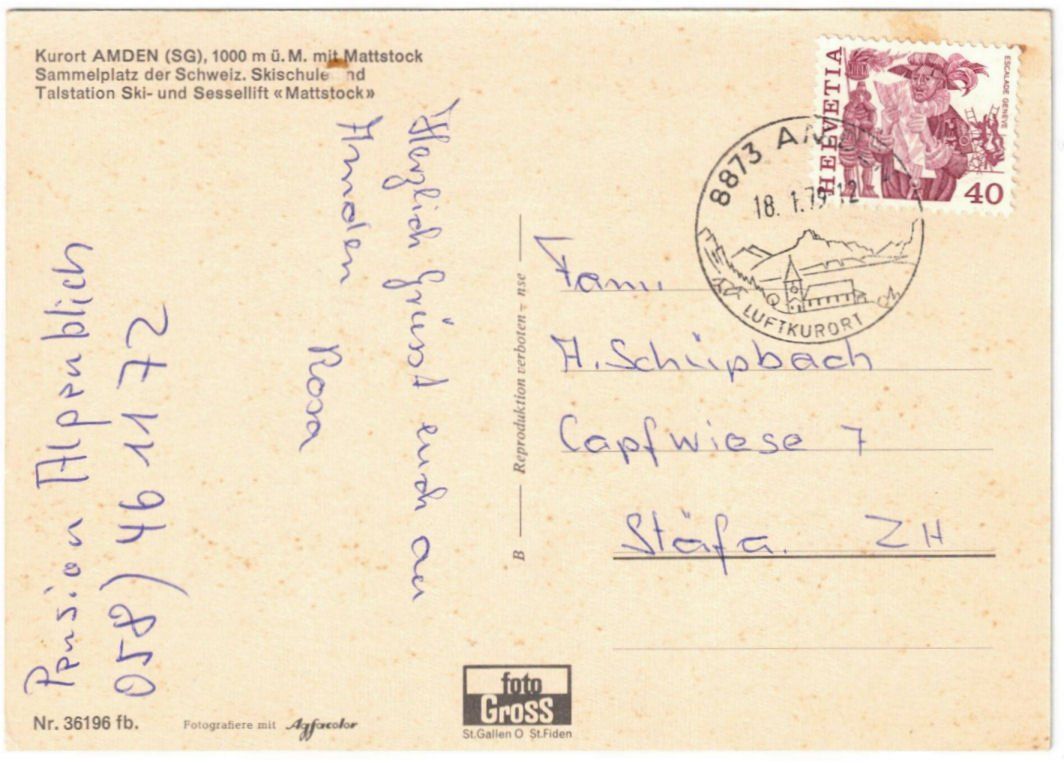 Kurort AMDEN (SG), 1000 m ü. M. mit Mattstock
Sammelplatz der Schweiz. Skischule nd
Talstation Ski- und Sessellift «Mattstock»
Herzlich grüsst euch aus
Amden
Rosa
Pension Alpenblich
058) 46 11 72
Nr. 36196 fb.
Fotografiere mit Agfacolor
foto
Gross
St.Gallen O St.Fiden
B
Reproduktion verboten - nse
HELVETIA
ESCALADE GENÈVE
40
8873 AMDEN
18. 1.79-12
LUFTKURORT
Fam.
A. Schüpbach
Capfwiese 7
Stäfa. ZH